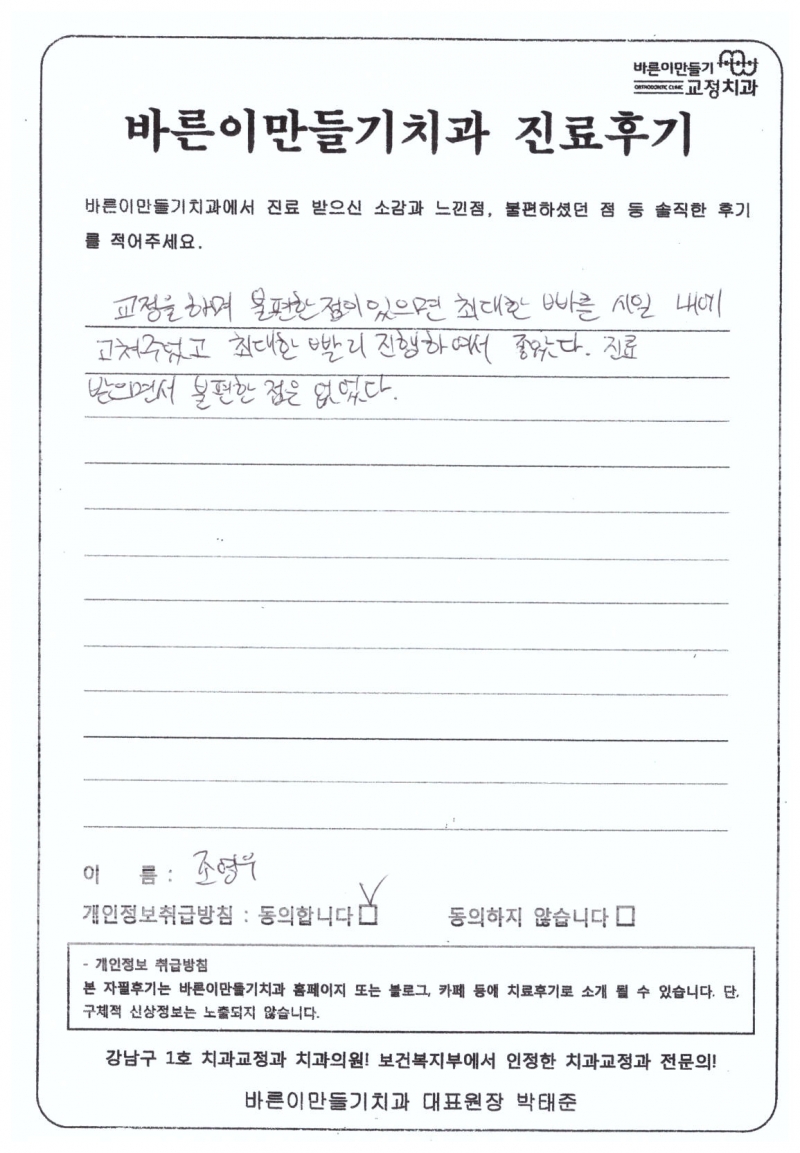 바른이만들기
ORTHODONTIC CLINIC 교정치과
바른이만들기치과 진료후기
바른이만들기치과에서 진료 받으신 소감과 느낀점, 불편하셨던 점 등 솔직한 후기
를 적어주세요.
교정을 하며 불편한점이 있으면 최대한 빠른 시일 내에
고쳐주었고 최대한 빨리 진행하여서 좋았다. 진료
받으면서 불편한 점은 없었다.
이 름 : 조영우
개인정보취급방침 : 동의합니다 ☑ 동의하지 않습니다 □
- 개인정보 취급방침
본 자필후기는 바른이만들기치과 홈페이지 또는 블로그, 카페 등에 치료후기로 소개 될 수 있습니다. 단,
구체적 신상정보는 노출되지 않습니다.
강남구 1호 치과교정과 치과의원! 보건복지부에서 인정한 치과교정과 전문의!
바른이만들기치과 대표원장 박태준